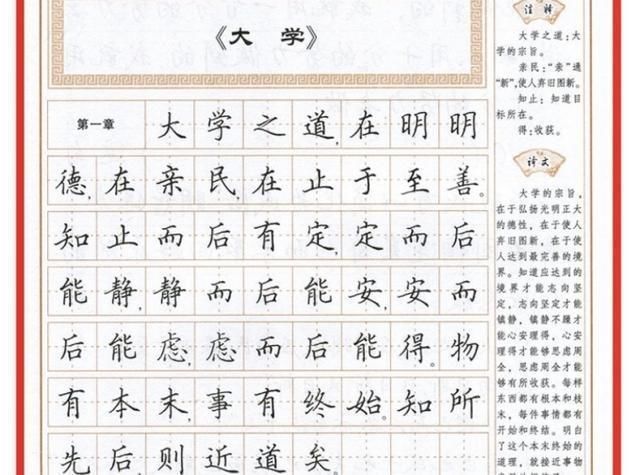 《大学》
第一章 大学之道,在明明
德,在亲民,在止于至善。
知止而后有定,定而后
能静,静而后能安,安而
后能虑,虑而后能得。物
有本末,事有终始。知所
先后,则近道矣。
注释
大学之道:大
学的宗旨。
亲民:“亲”通
“新”,使人弃旧图新。
知止:知道目
标所在。
得:收获。
译文
大学的宗旨,
在于弘扬光明正大
的德性,在于使人
弃旧图新,在于使
人达到最完善的境
界。知道应达到的
境界才能志向坚
定,志向坚定才能
镇静,镇静不躁才
能心安理得,心安
理得才能够思虑周
全,思虑周全才能
够有所收获。每样
东西都有根本和枝
末,每件事情都有
开始和终结。明白
了这个本末终始的
道理,就接近事物